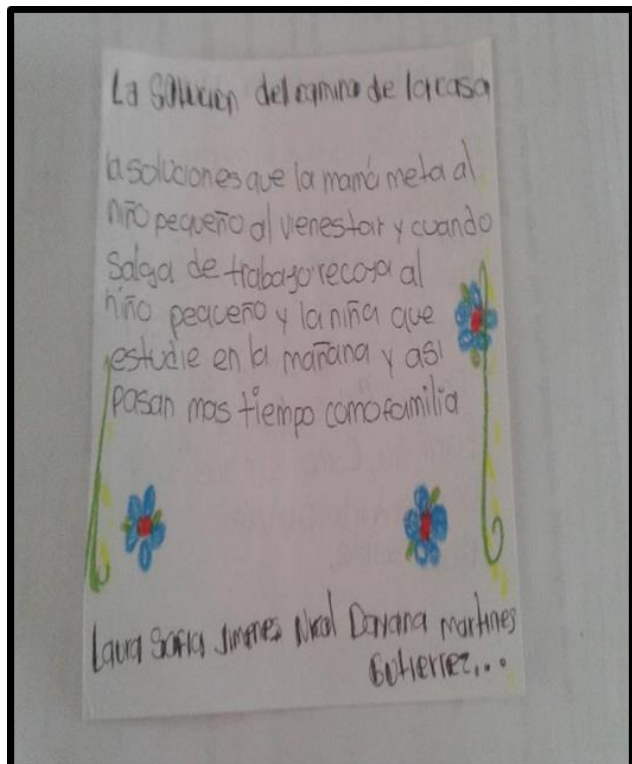 La Solucion del camino de la casa
la soluciones que la mamá meta al
niño pequeño al vienestar y cuando
Salga de trabajo recoja al
niño pequeño y la niña que
estudie en la mañana y asi
pasan mas tiempo como familia
Laura Sofia Jimenes Nicol Dayana Martines
Gutierrez...